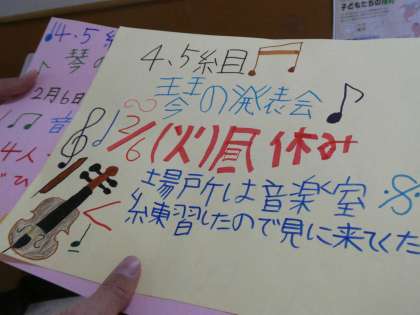 4、5組目
琴の発表会
2/6(火)昼休み
場所は音楽室
練習したので見に来てくた
4.5組
琴の
2月6日
音
4人
ひ
子どもたちの